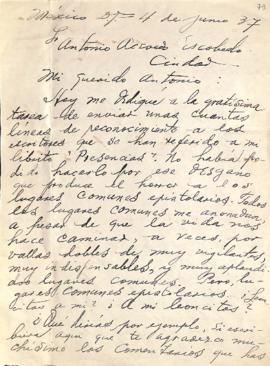 México D.F. 4 de junio 37
Sr Antonio Acevedo Escobedo
Ciudad
Mi querido Antonio:
Hoy me dediqué a la gratísima
tarea de enviar unas cuantas
líneas de reconocimiento a los
escritores que se han referido a mi
librito "Presencias". No había po-
dido hacerlo por ese desgano
que produce el horror a los
lugares comunes epistolarios. Todos
los lugares comunes me anonadan
a pesar de que la vida nos
hace caminar, a veces, por
vallas dobles de muy vigilantes,
muy indispensables, y muy aplaudi-
dos lugares comunes. Pero, lu-
gares comunes epistolarios.
a mí? ¿A mi leoncitos?
¿Qué dirías, por ejemplo, si escri-
biera aquí que te agradezco mu-
chísimo los comentarios que has